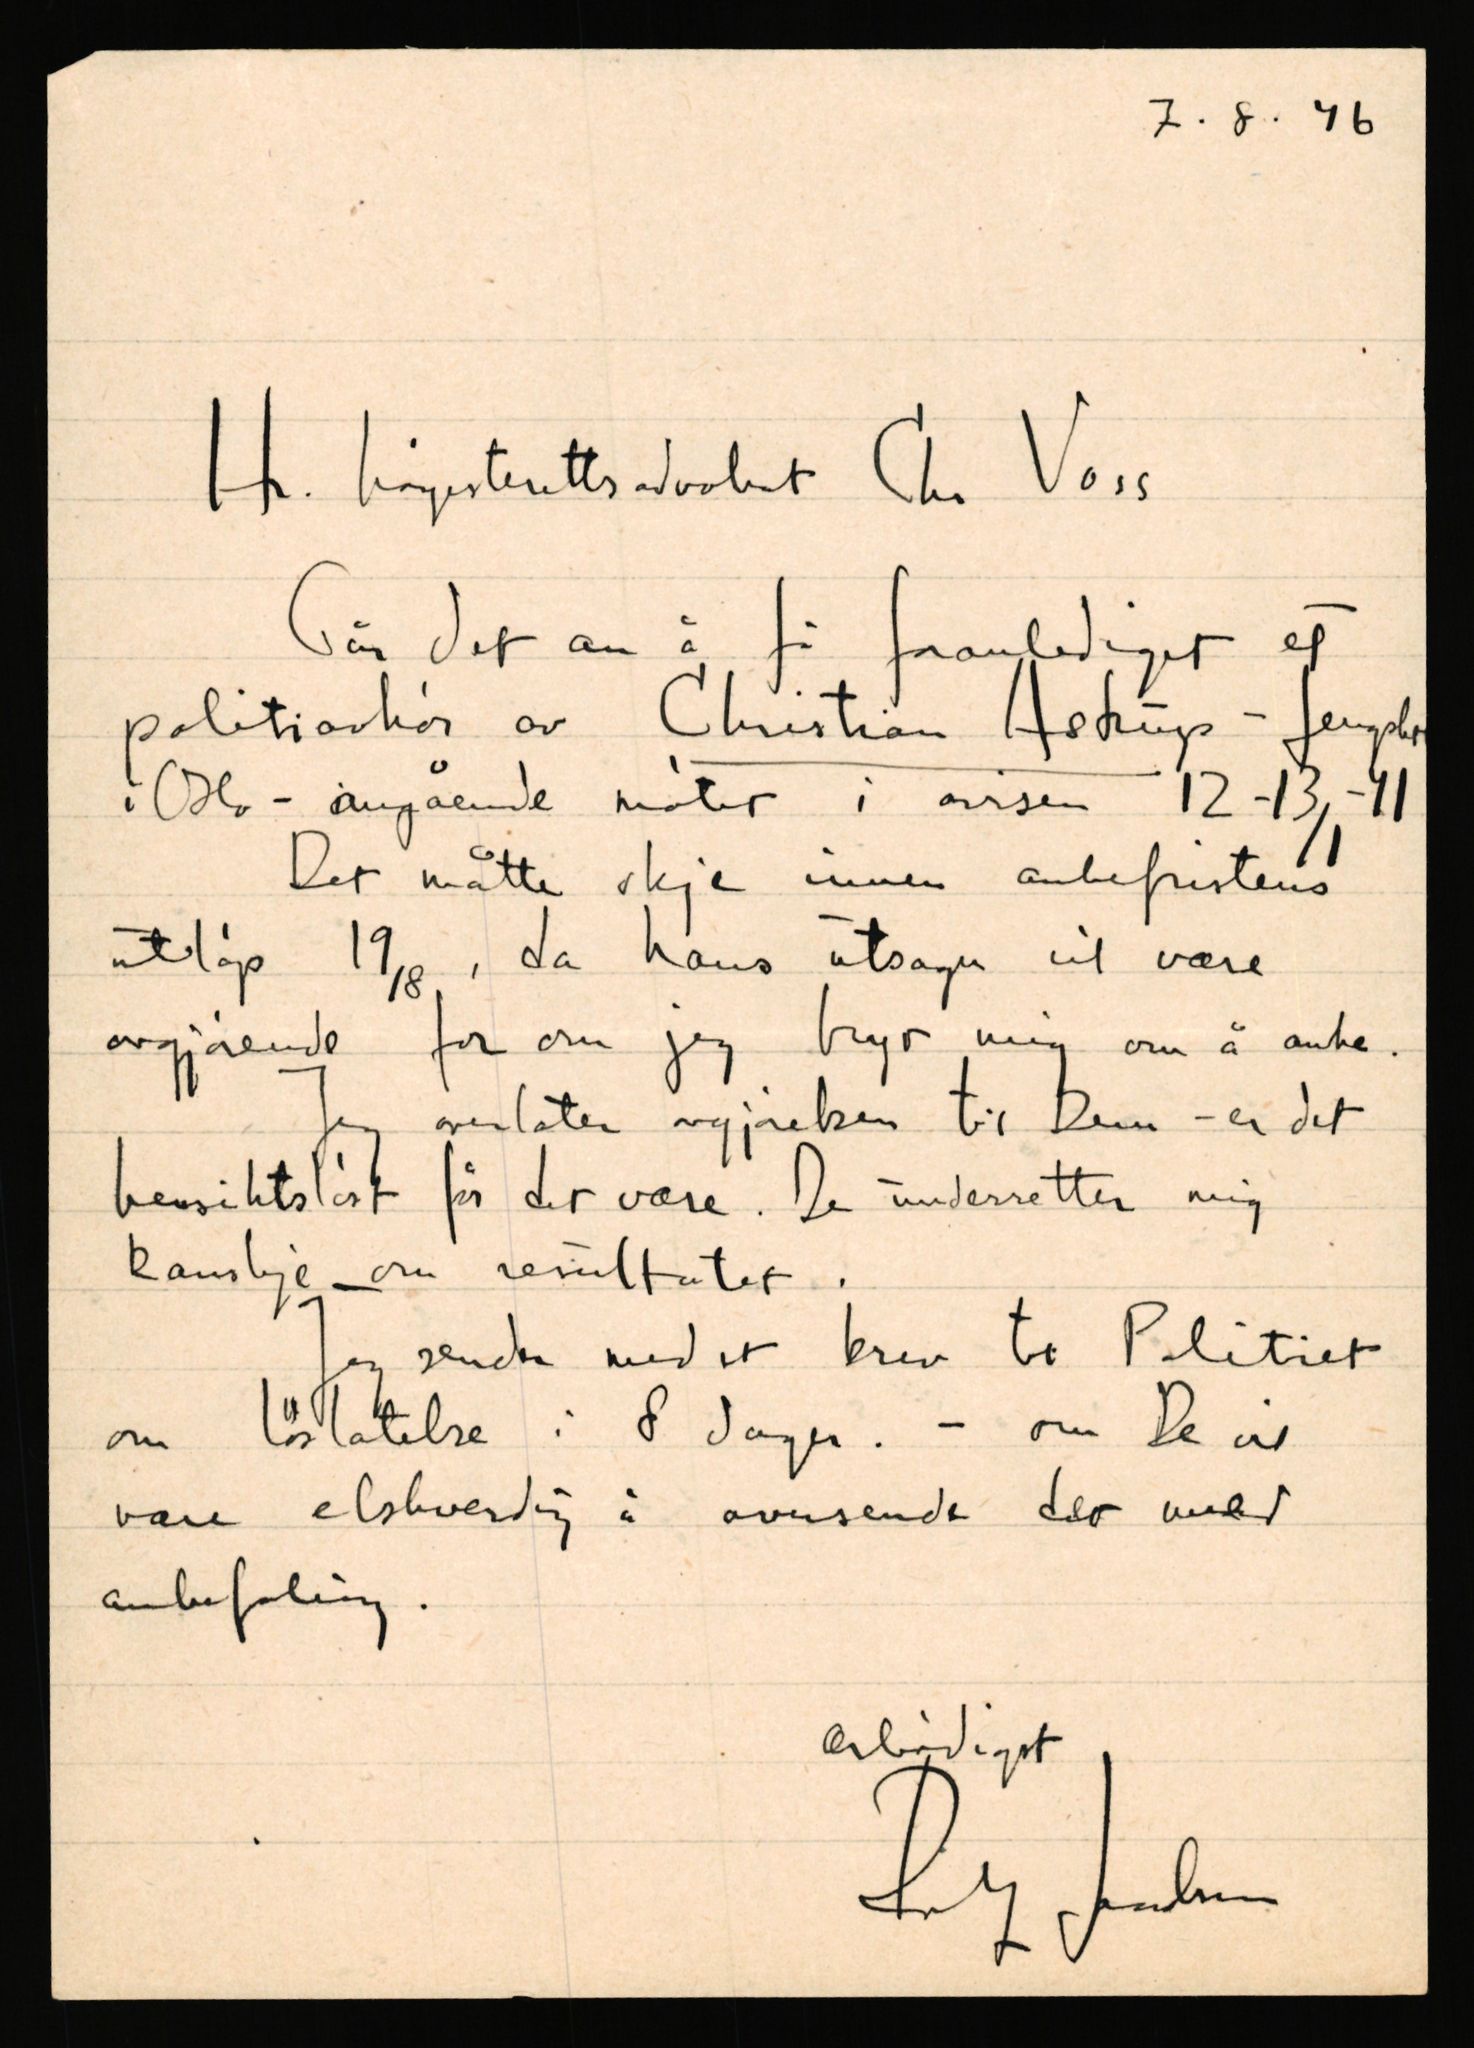 7. 8. 46
Hr. höyesterettsadvokat Chr Voss
Går det an å få foranlediget et
politiavhör av Christian Astrup - fengslet
i Oslo - angående mötet i avisen 12-13/1-41
Det måtte skje innen ankefristens
utlöp 19/8, da hans utsagn vil være
avgjörende for om jeg bryr mig om å anke.
Jeg overlater avgjörelsen til Dem - er det
hensiktslöst får det være. De underretter mig
kanskje om resultatet.
Jeg sender med et brev til Politiet
om löslatelse i 8 dager. - om De vil
være elskverdig å oversende det med
anbefaling.
ærbödigst
Rolf Jacobsen